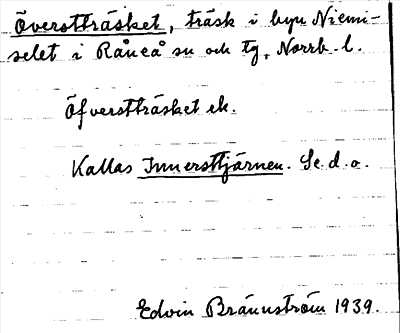 Överstträsket, träsk i byn Niemi-
selet i Råneå sn och tg, Norrb. l.
Öfverstträsket ek.
Kallas Innersttjärnen. Se d. o.
Edvin Brännström 1939.